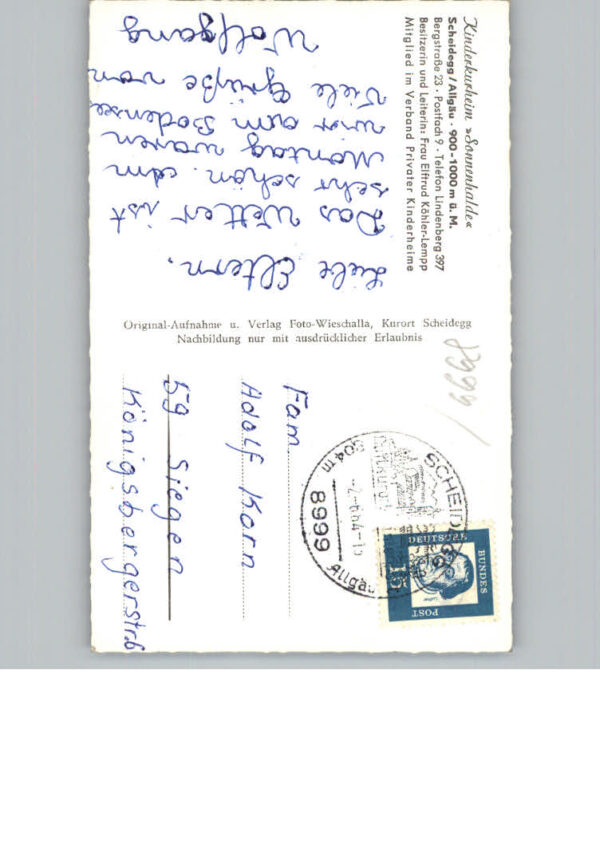 Kinderkurheim »Sonnenhalde«
Scheidegg / Allgäu · 900-1000 m ü. M.
Bergstraße 23 · Postfach 9 · Telefon Lindenberg 397
Besitzerin und Leiterin: Frau Elftrud Köhler-Lempp
Mitglied im Verband Privater Kinderheime
Liebe Eltern.
Das Wetter ist
sehr schön. am
Montag waren
wir am Bodensee
Viele Grüße von
Wolfgang
Original-Aufnahme u. Verlag Foto-Wieschalla, Kurort Scheidegg
Nachbildung nur mit ausdrücklicher Erlaubnis
Fam.
Adolf Korn
59 Siegen
Königsbergerstr.6
8999
Allgäu
804 m
DEUTSCHE
BUNDES
POST
15